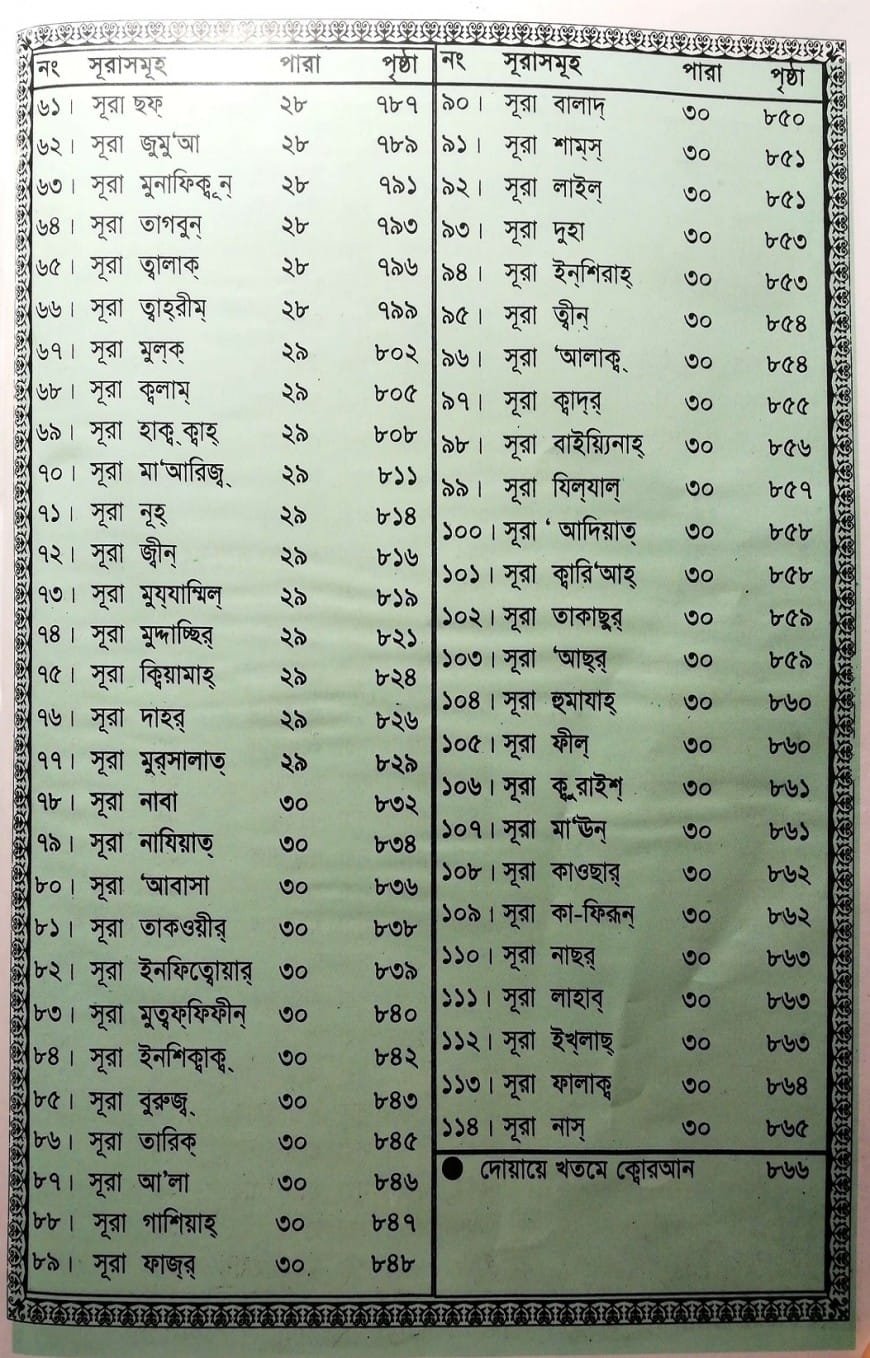 নং সূরাসমূহ পারা পৃষ্ঠা
৬১। সূরা ছফ্ ২৮ ৭৮৭
৬২। সূরা জুমু‘আ ২৮ ৭৮৯
৬৩। সূরা মুনাফিক্বূন্ ২৮ ৭৯১
৬৪। সূরা তাগবুন্ ২৮ ৭৯৩
৬৫। সূরা ত্বালাক্ ২৮ ৭৯৬
৬৬। সূরা ত্বাহ্‌রীম্ ২৮ ৭৯৯
৬৭। সূরা মুল্‌ক্ ২৯ ৮০২
৬৮। সূরা ক্বলাম্ ২৯ ৮০৫
৬৯। সূরা হাক্ব্‌ক্বাহ্ ২৯ ৮০৮
৭০। সূরা মা‘আরিজ্ব্ ২৯ ৮১১
৭১। সূরা নূহ্ ২৯ ৮১৪
৭২। সূরা জ্বীন্ ২৯ ৮১৬
৭৩। সূরা মুয্‌যাম্মিল্ ২৯ ৮১৯
৭৪। সূরা মুদ্দাচ্ছির্ ২৯ ৮২১
৭৫। সূরা ক্বিয়ামাহ্ ২৯ ৮২৪
৭৬। সূরা দাহর্ ২৯ ৮২৬
৭৭। সূরা মুর্‌সালাত্ ২৯ ৮২৯
৭৮। সূরা নাবা ৩০ ৮৩২
৭৯। সূরা নাযিয়াত্ ৩০ ৮৩৪
৮০। সূরা ‘আবাসা ৩০ ৮৩৬
৮১। সূরা তাকওয়ীর্ ৩০ ৮৩৮
৮২। সূরা ইনফিত্বোয়ার্ ৩০ ৮৩৯
৮৩। সূরা মুত্বফ্‌ফিফীন্ ৩০ ৮৪০
৮৪। সূরা ইনশিক্বাক্ব্ ৩০ ৮৪২
৮৫। সূরা বুরুজ্ব্ ৩০ ৮৪৩
৮৬। সূরা তারিক্ ৩০ ৮৪৫
৮৭। সূরা আ'লা ৩০ ৮৪৬
৮৮। সূরা গাশিয়াহ্ ৩০ ৮৪৭
৮৯। সূরা ফাজ্‌র্ ৩০ ৮৪৮
নং সূরাসমূহ পারা পৃষ্ঠা
৯০। সূরা বালাদ্ ৩০ ৮৫০
৯১। সূরা শাম্‌স্ ৩০ ৮৫১
৯২। সূরা লাইল্ ৩০ ৮৫১
৯৩। সূরা দুহা ৩০ ৮৫৩
৯৪। সূরা ইন্‌শিরাহ্ ৩০ ৮৫৩
৯৫। সূরা ত্বীন্ ৩০ ৮৫৪
৯৬। সূরা ‘আলাক্ব্ ৩০ ৮৫৪
৯৭। সূরা ক্বাদ্‌র্ ৩০ ৮৫৫
৯৮। সূরা বাইয়্যিনাহ্ ৩০ ৮৫৬
৯৯। সূরা যিল্‌যাল্ ৩০ ৮৫৭
১০০। সূরা ‘ আদিয়াত্ ৩০ ৮৫৮
১০১। সূরা ক্বারি‘আহ্ ৩০ ৮৫৮
১০২। সূরা তাকাছুর্ ৩০ ৮৫৯
১০৩। সূরা ‘আছ্‌র্ ৩০ ৮৫৯
১০৪। সূরা হুমাযাহ্ ৩০ ৮৬০
১০৫। সূরা ফীল্ ৩০ ৮৬০
১০৬। সূরা ক্বুরাইশ্ ৩০ ৮৬১
১০৭। সূরা মা‘ঊন্ ৩০ ৮৬১
১০৮। সূরা কাওছার্ ৩০ ৮৬২
১০৯। সূরা কা-ফিরূন্ ৩০ ৮৬২
১১০। সূরা নাছর্ ৩০ ৮৬৩
১১১। সূরা লাহাব্ ৩০ ৮৬৩
১১২। সূরা ইখ্‌লাছ্ ৩০ ৮৬৩
১১৩। সূরা ফালাক্ব ৩০ ৮৬৪
১১৪। সূরা নাস্ ৩০ ৮৬৫
● দোয়ায়ে খতমে ক্বোরআন ৮৬৬